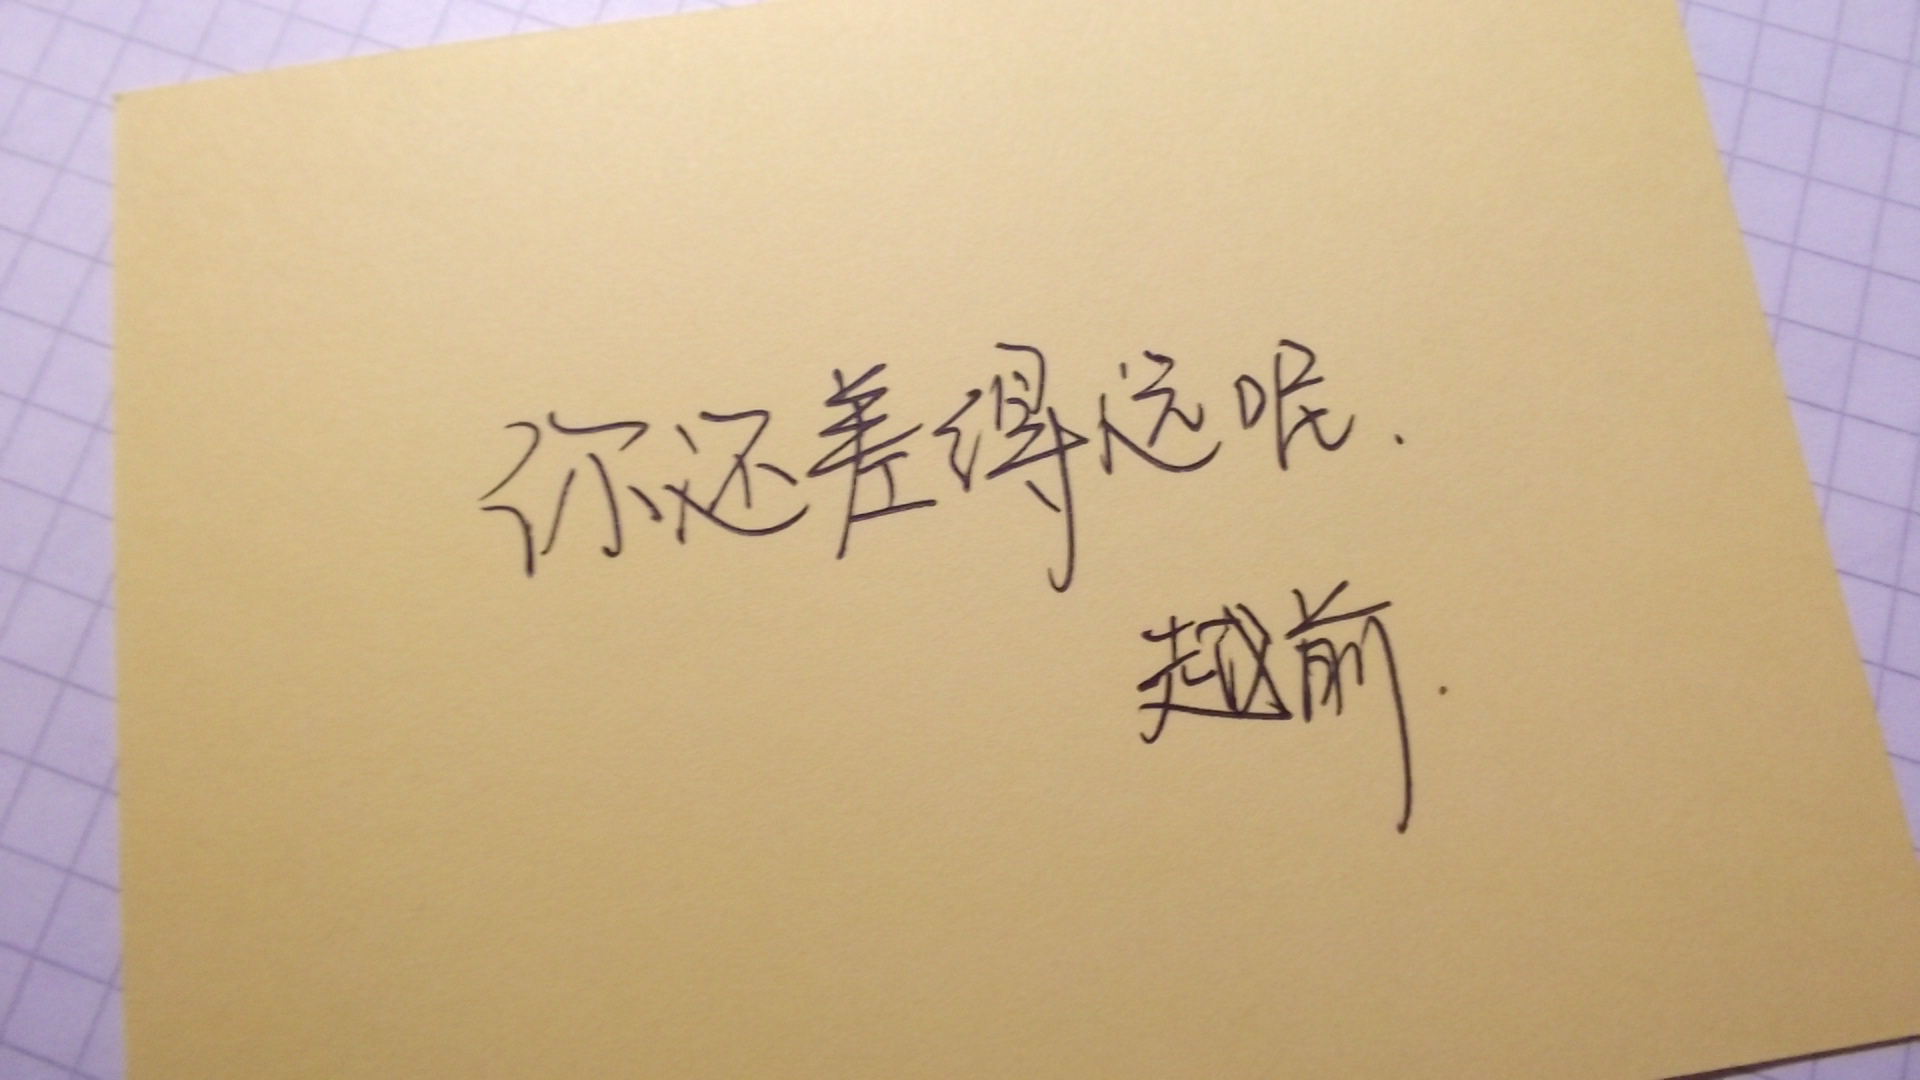 你还差得远呢.
越前.